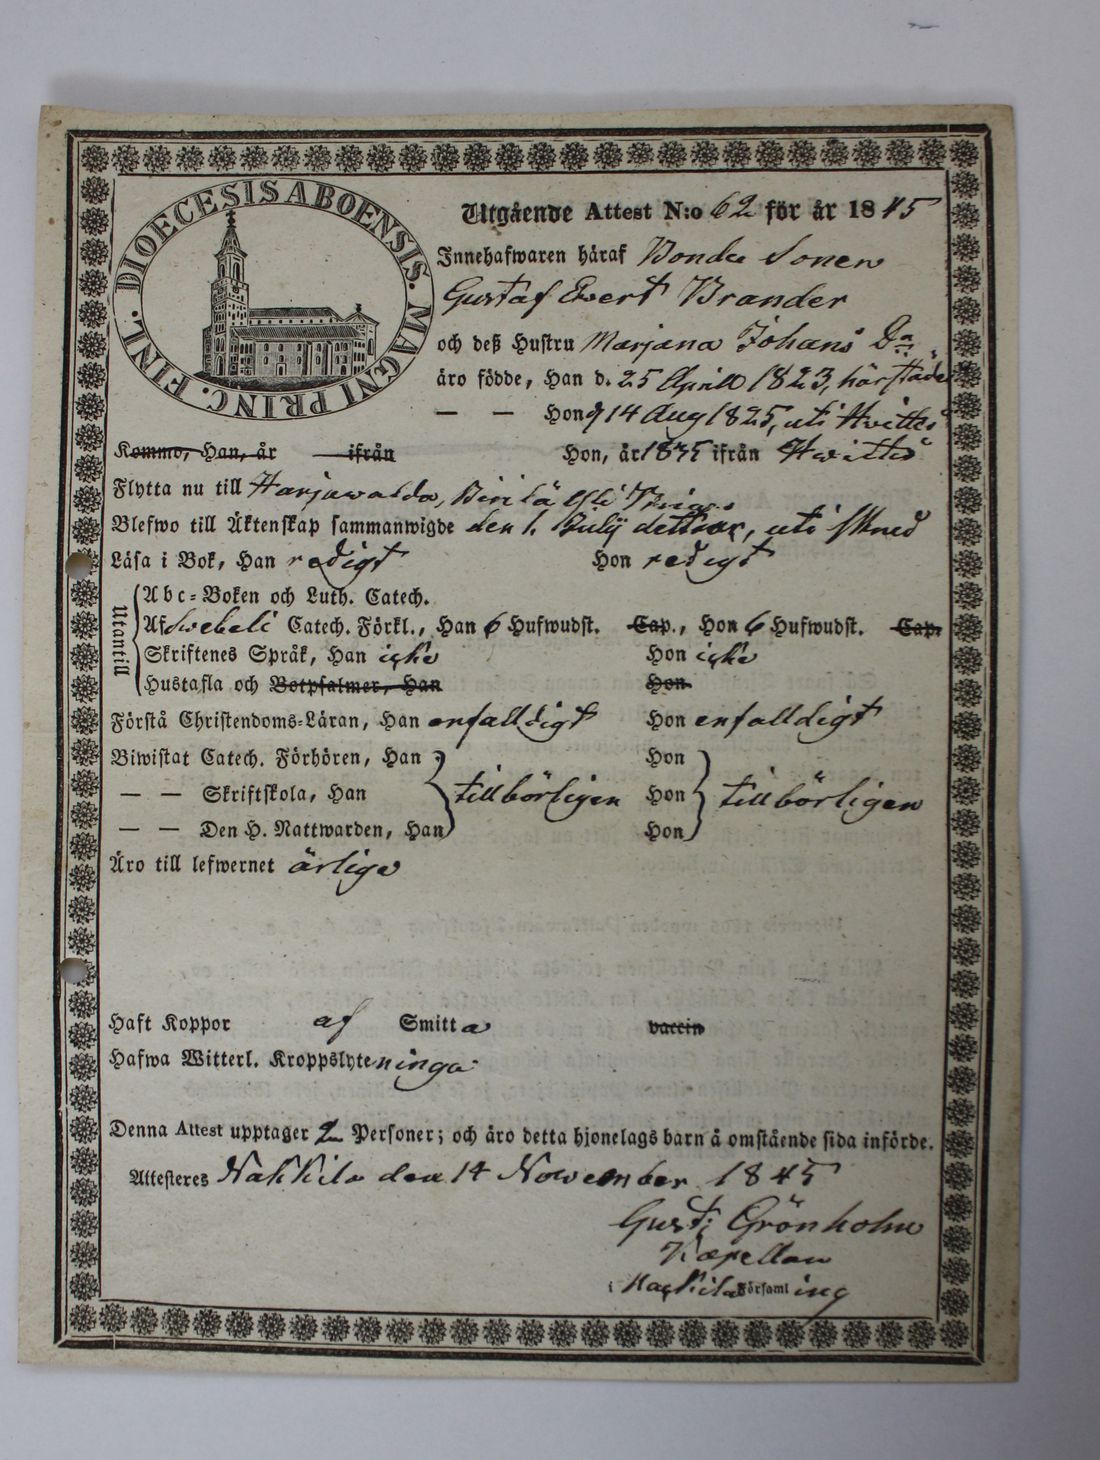 DIOECESIS ABOENSIS. MAGNI PRINC. FINL.
Utgående Attest N:o 62 för år 1845
Innehafwaren häraf Bonde Sonen
Gustaf Evert Brander
och deß Hustru Marjana Johans Dr
äro födde, Han d. 25 Aprill 1823, härstädes
— — Hon d 14 Aug 1825, uti Hvittis
Kommo, Han, år ifrån Hon, år 1845 ifrån Hwittis
Flytta nu till Harjawalda,
Blefwo till Äktenskap sammanwigde den 1. Julij dettta år, uti
Läsa i Bok, Han redigt Hon redigt
Utantill
Abc-Boken och Luth. Catech.
Af Swebeli Catech. Förkl., Han 6 Hufwudst. Cap., Hon 6 Hufwudst. Cap.
Skriftenes Språk, Han icke Hon icke
Hustafla och Botpsalmer, Han Hon
Förstå Christendoms-Läran, Han enfalldigt Hon enfalldigt
Biwistat Catech. Förhören, Han Hon
— — Skriftskola, Han tillbörligen Hon tillbörligen
— — Den H. Nattwarden, Han Hon
Äro till lefwernet ärliga
Haft Koppor af Smitta vaccin
Hafwa Witterl. Kroppslyten inga
Denna Attest upptager 2 Personer; och äro detta hjonelags barn å omstående sida införde.
Attesteres Nakkila den 14 November 1845
Gust: Grönholm
Kapellan
i Nakkila Församling